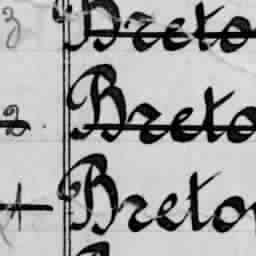 3 Breto
2 Breto
1 Breto